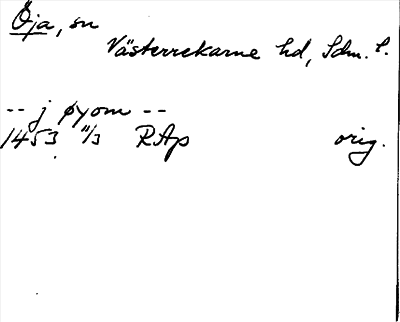 Öja, sn
Västerrekarne hd, Sdm. l.
-- j øyom --
1453 11/3 RAp orig.